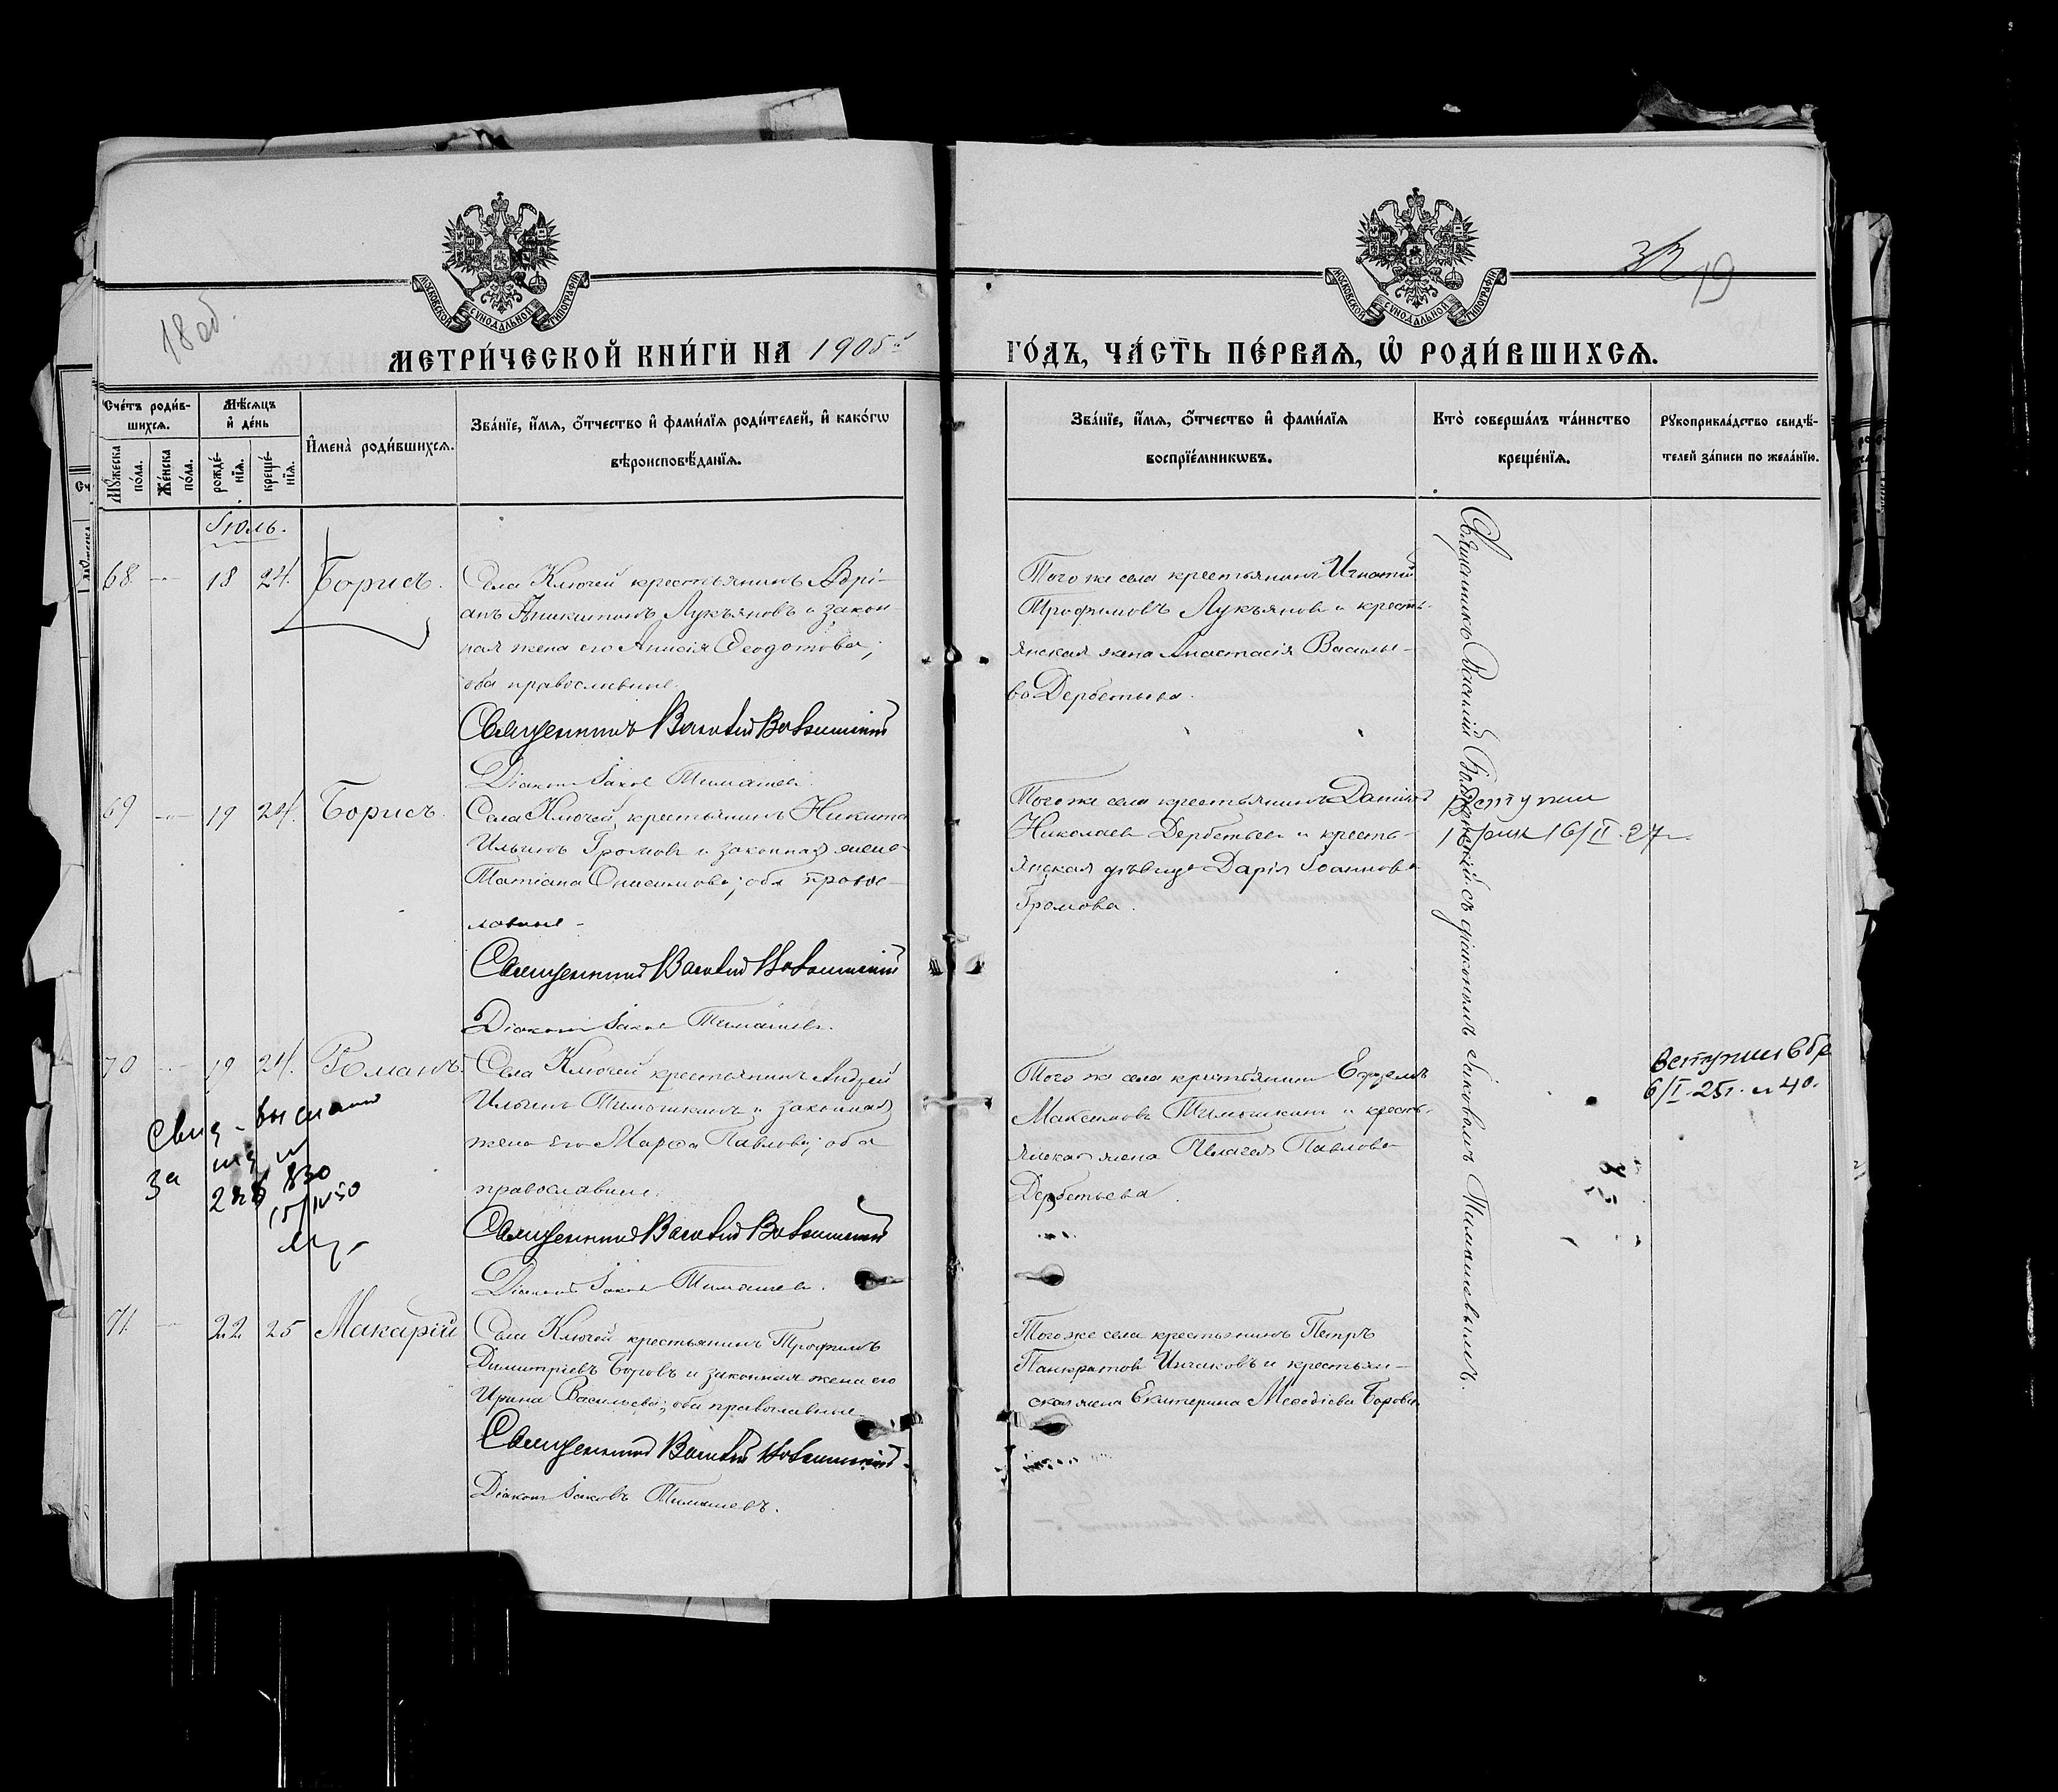 18 об.
19
МОСКОВСКОЙ СѴНОДАЛЬНОЙ ТИПОГРАФІИ
МОСКОВСКОЙ СѴНОДАЛЬНОЙ ТИПОГРАФІИ
МЕТРИ́ЧЕСКОЙ КНИ́ГИ НА 1905й
ГО́ДЪ, ЧА́СТЬ ПЕ́РВАѦ, Ѡ҆ РОДИ́ВШИХСѦ.
Сче́тъ роди́в-
шихсѧ.
Мꙋ́жеска по́ла.
Же́нска по́ла.
Мѣ́сѧцъ
и҆ де́нь
рожде́-
нїѧ.
креще́-
нїѧ.
И҆мена̀ роди́вшихсѧ.
Зва́нїе, и҆́мѧ, ѻ҆́тчество и҆ фами́лїѧ роди́телей, и҆ како́гѡ
вѣроисповѣ́данїѧ.
Зва́нїе, и҆́мѧ, ѻ҆́тчество и҆ фами́лїѧ
воспрїе́мникѡвъ.
Кто̀ соверша́лъ та́инство
креще́нїѧ.
Рꙋкоприкла́дство свидѣ́-
телей за́писи по жела́нїю.
Іюль.
68 — 18 24. Борисъ.
Села Ключей крестьянинъ Адрі-
анъ Аникитинъ Лукъяновъ и закон-
ная жена его Анисія Ѳеодотова;
оба православные.
Священникъ Василий
Діаконъ Іаковъ Тимашевъ.
Того же села крестьянинъ Игнатий
Трофимовъ Лукъяновъ и кресть-
янская жена Анастасія Василье-
ва Дербетьева.
69 — 19 24. Борисъ.
Села Ключей крестьянинъ Никита
Ильинъ Громовъ и законная жена
Татіана Онисимова; оба правос-
лавные
Священникъ Василий
Діаконъ Іаковъ Тимашевъ.
Того же села крестьянинъ Даниилъ
Николаевъ Дербетьевъ и кресть-
янская дѣвица Дарія Іоаннова
Громова.
Вступил
16/II 27
70 — 19 24. Романъ.
Села Ключей крестьянинъ Андрей
Ильинъ Тимошкинъ и законная
жена его Марѳа Павлова; оба
православные.
Священникъ Василий
Діаконъ Іаковъ Тимашевъ.
Свид - выслано
за
830
15/IV 30
Того же села крестьянинъ Ефремъ
Максимовъ Тимошкинъ и кресть-
янская жена Пелагея Павлова
Дербетьева.
Вступил в бр
6/I-25г. № 40.
71. — 22 25 Макарій
Села Ключей крестьянинъ Трофимъ
Димитріевъ Боровъ и законная жена его
Ирина Васильева; оба православные
Священникъ Василий
Діаконъ Іаковъ Тимашевъ.
Того же села крестьянинъ Петръ
Панкратовъ Инчаковъ и крестьян-
ская жена Екатерина Меѳодіева Борова
Священникъ Василій съ діакономъ Іаковомъ Тимашевымъ.